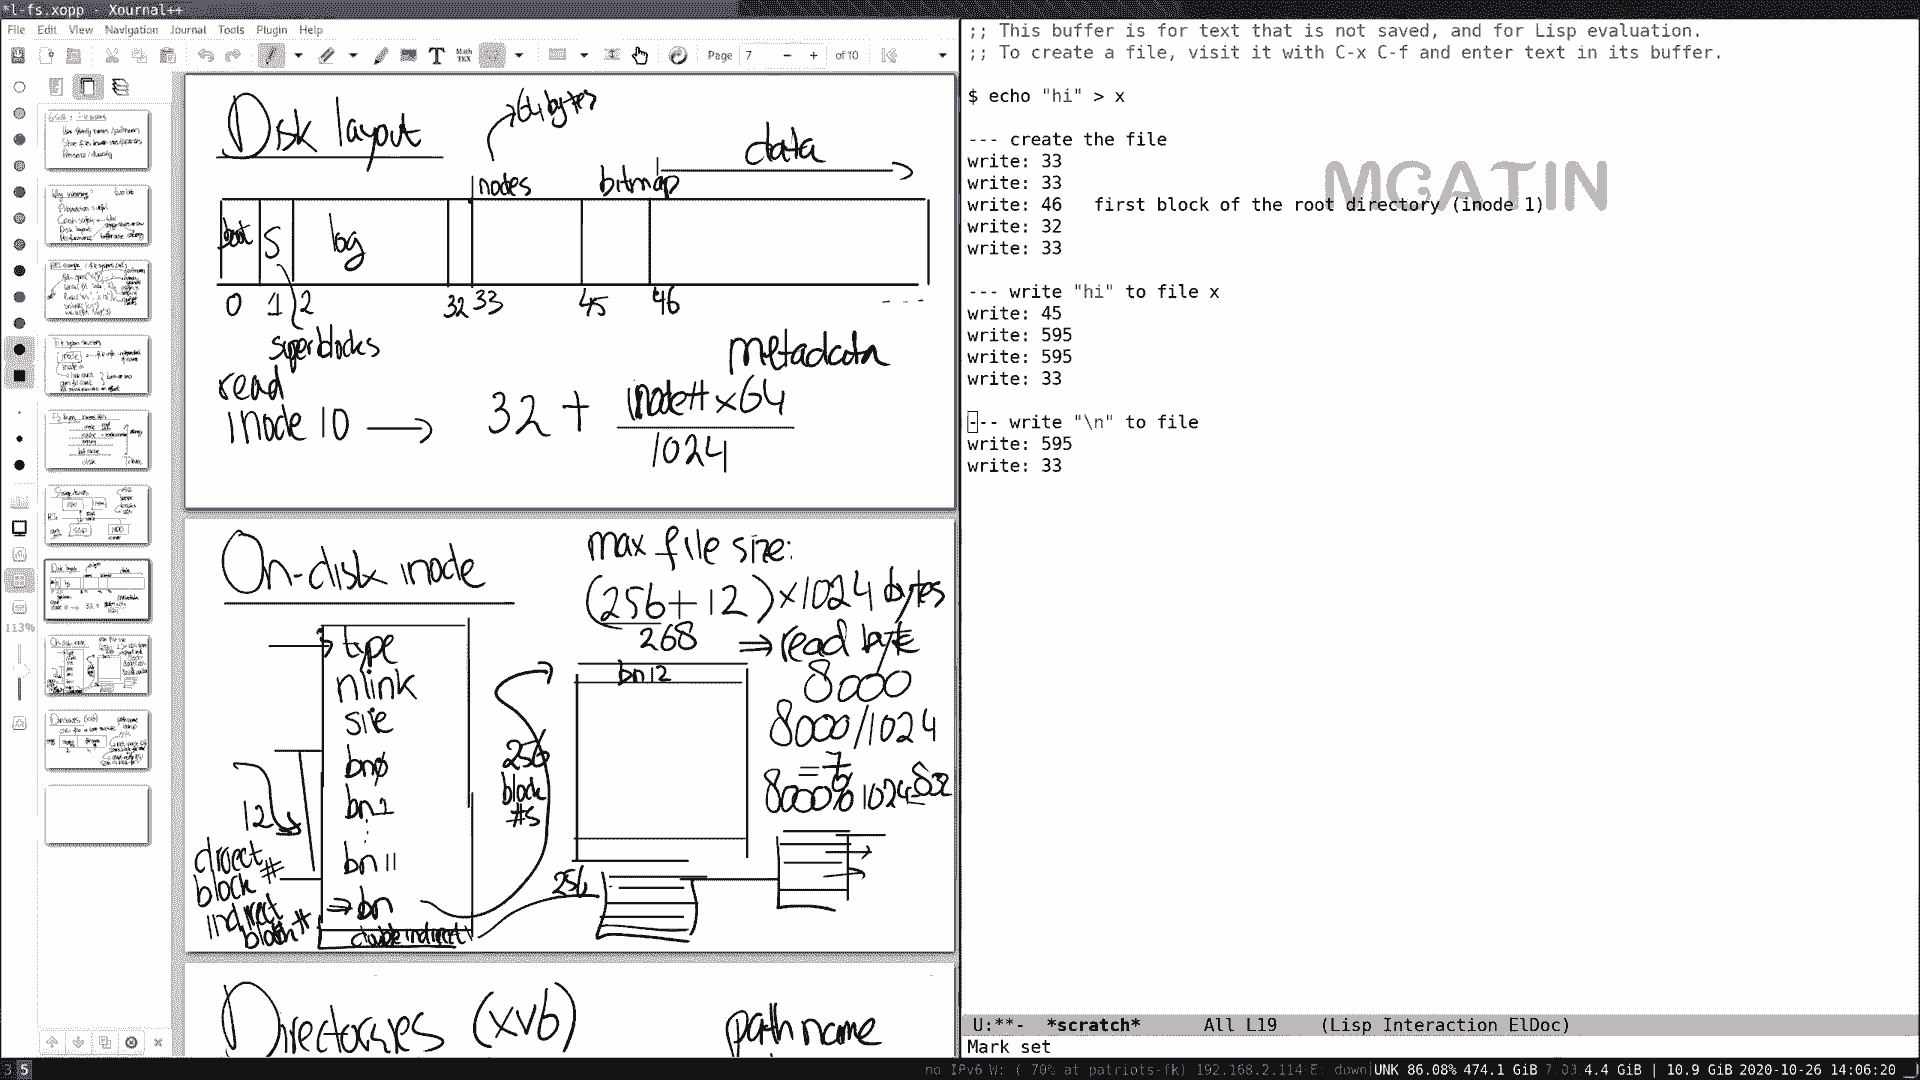 *l-fs.xopp - Xournal++
File Edit View Navigation Journal Tools Plugin Help
Page 7 - + of 10
113%
Disk layout
64 bytes
data
inodes
bitmap
boot S log
0 1 2 32 33 45 46 ----
superblocks
metadata
read
inode 10 → 32 + inode# x 64
1024
On-disk inode
max file size:
(256+12)x1024 bytes
268
⇒ read byte
8000
8000/1024
= 7
8000%1024=832
type
nlink
size
bn0
bn1
⋮
bn11
⇒ bn
double indirect
12
direct
block #
indirect
block #
256
block
#s
bn12
256
Directories (xv6)
pathname
;; This buffer is for text that is not saved, and for Lisp evaluation.
;; To create a file, visit it with C-x C-f and enter text in its buffer.
$ echo "hi" > x
--- create the file
write: 33
write: 33
write: 46 first block of the root directory (inode 1)
write: 32
write: 33
--- write "hi" to file x
write: 45
write: 595
write: 595
write: 33
--- write "\n" to file
write: 595
write: 33
MCATIN
U:**- *scratch* All L19 (Lisp Interaction ElDoc)
Mark set
3 5
no IPv6 W: ( 70% at patriots-fk) 192.168.2.114 E: down|UNK 86.08% 474.1 GiB 4.4 GiB | 10.9 GiB 2020-10-26 14:06:20